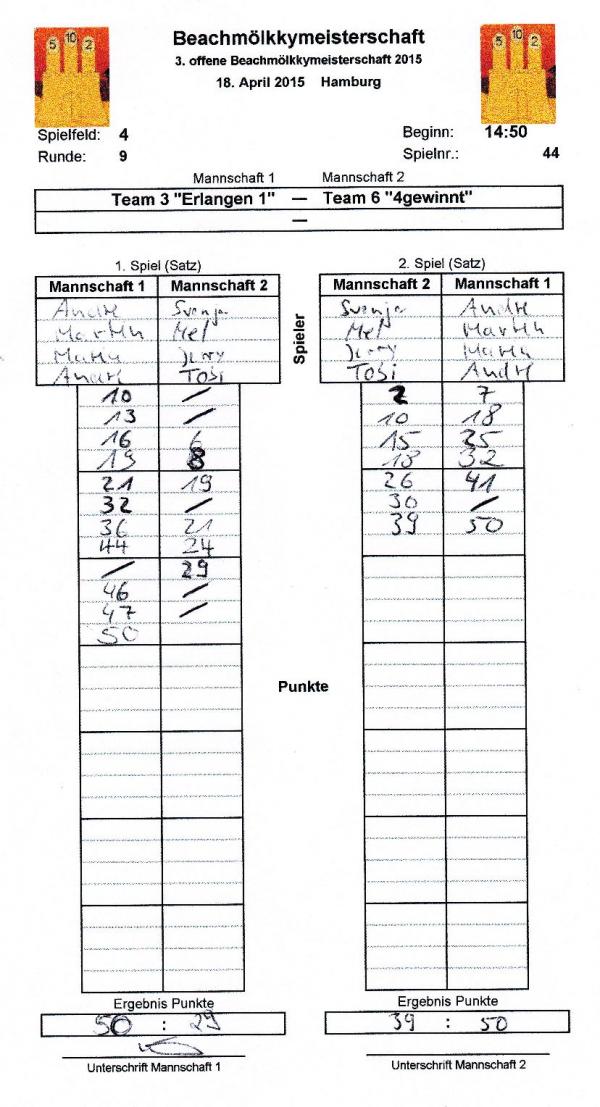 5 10 2
5 10 2
Beachmölkkymeisterschaft
3. offene Beachmölkkymeisterschaft 2015
18. April 2015 Hamburg
Spielfeld: 4 Beginn: 14:50
Runde: 9 Spielnr.: 44
Mannschaft 1 Mannschaft 2
Team 3 "Erlangen 1" — Team 6 "4gewinnt"
—
1. Spiel (Satz) 2. Spiel (Satz)
Mannschaft 1 Mannschaft 2 Mannschaft 2 Mannschaft 1
Andre Svenja Svenja Andre
Martin Mel Mel Martin
Martin Martin
André Tobi Tobi André
Spieler
10 / 2 7
13 / 10 18
16 6 15 25
19 8 18 32
21 19 26 41
32 / 30 /
36 21 39 50
44 24
/ 29
46 /
47 /
50
Punkte
Ergebnis Punkte Ergebnis Punkte
50 : 29 39 : 50
Unterschrift Mannschaft 1 Unterschrift Mannschaft 2